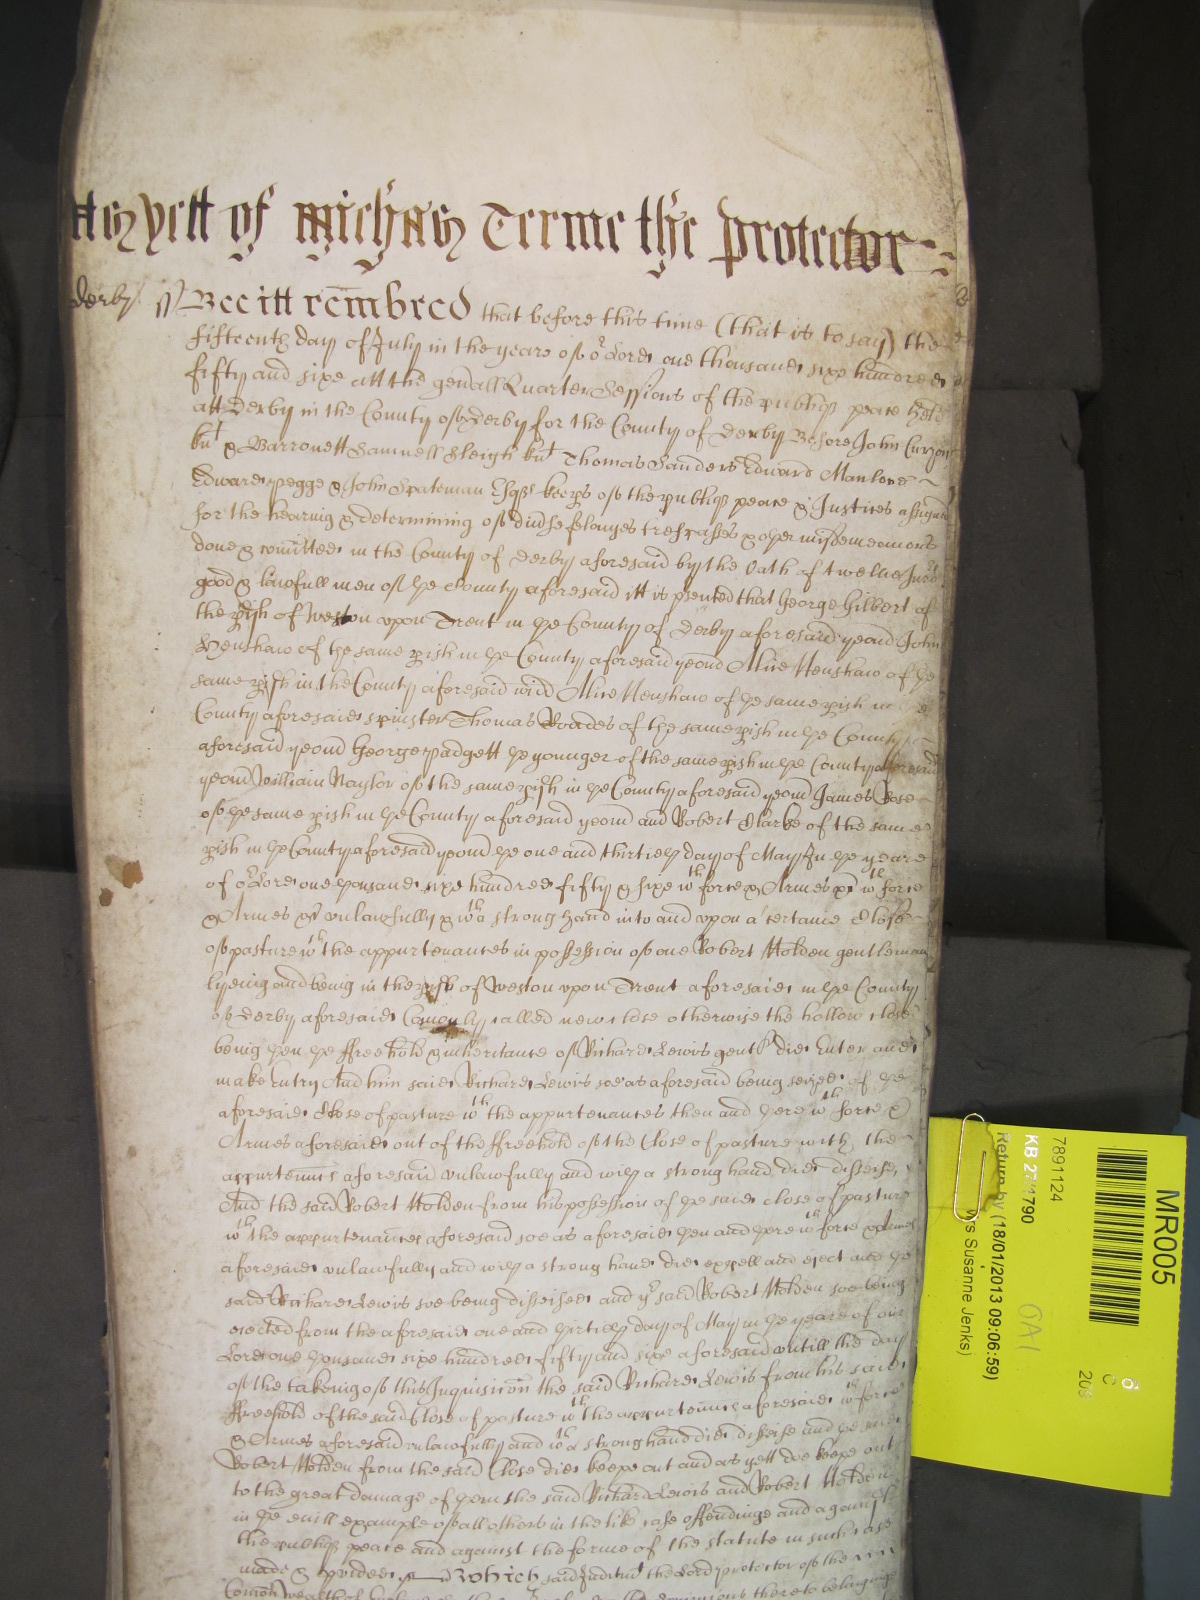 As yett of Michas Terme the protector
Derby ss Bee itt remembred that before this time (that is to say) the
fifteenth day of July in the yeare of or Lord one thousand sixe hundred
fifty and sixe att the genall Quarter Sessions of the publiq peace held
att Derby in the County of Derby for the County of Derby Before John Curzon
knt & Barronett Samuell Sleigh knt Thomas Sanders Edward Manlove
Edward Pegge & John Spateman Esqs keeps of the publiq peace & Justices assigned
for the hearing & determining of divse felonyes trespasses & other misdemeanors
done & comitted in the County of Derby aforesaid by the Oath of twelve Jurors
good & lawfull men of the County aforesaid itt is psented that George Gilbert of
the pish of Weston upon Trent in the County of Derby aforesaid yeom John
Henshaw of the same pish in the County aforesaid yeom Alice Henshaw of the
same pish in the County aforesaid wid Alice Henshaw of the same pish in the
County aforesaid spinster Thomas Roades of the same pish in the County
aforesaid yeom George Padgett the younger of the same pish in the County aforesaid
yeom William Naylor of the same pish in the County aforesaid yeom James Rose
of the same pish in the County aforesaid yeom and Robert Clarke of the same
pish in the County aforesaid yeom the one and thirtieth day of May In the yeare
of or Lord one thousand sixe hundred fifty & sixe wth force & Armes wth force
& Armes unlawfully & wth a strong hand into and upon a certaine Close
of pasture wth the appurtenances in possession of one Robert Holden gentleman
lyeing and being in the pish of Weston upon Trent aforesaid in the County
of Derby aforesaid Comonly called new close otherwise the hollow close
being then the ffreehold & inheritance of Richard Lewis gent did Enter and
make Entry And him said Richard Lewis soe as aforesaid being seized of the
aforesaid Close of pasture wth the appurtenances then and there wth force &
Armes aforesaid out of the ffreehold of the Close of pasture with the
appurtennces aforesaid unlawfully and with a strong hand did disseise
And the said Robert Holden from his possession of the said close of pasture
wth the appurtenances aforesaid soe as aforesaid then and there wth force & Armes
aforesaid unlawfully and with a strong hand did expell and eject and the
said Richard Lewis soe being disseised and ye said Robert Holden soe being
ejected from the aforesaid one and thirtieth day of May in the yeare of our
Lord one thousand sixe hundred fifty and sixe aforesaid untill the day
of the takeing of this Inquisicon the said Richard Lewis from his said
ffreehold of the said Close of pasture wth the appurtennces aforesaid wth force
& Armes aforesaid unlawfully and wth a strong hand did disseise and the said
Robert Holden from the said Close did keepe out and as yett doe keepe out
to the great damage of them the said Richard Lewis and Robert Holden
in the evill example of all others in the like case offendinge and against
the publiq peace and against the forme of the statute in such case
made & pvided Which said Indictmt the Lord protector of the
Comon Wealth of dominions thereto belonginge
MR005
7891124
KB 27/1790
Return by (18/01/2013 09:06:59)
Mrs Susanne Jenks)
6
C